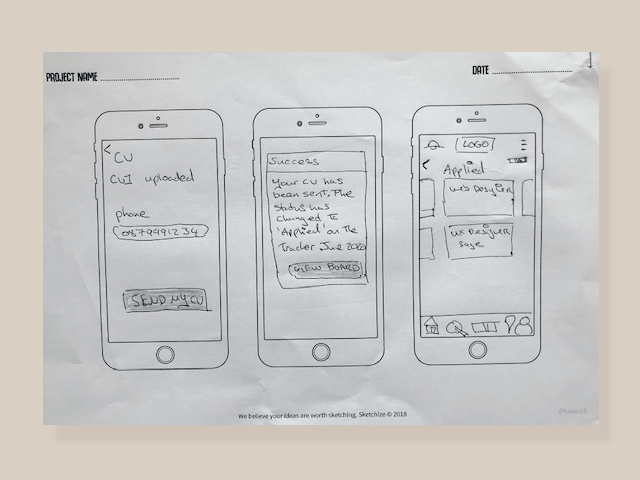 PROJECT NAME
DATE
<
CV
CV1 uploaded
phone
0879991234
SEND MY CV
Success
Your CV has
been sent. The
status has
changed to
'Applied' on the
Tracker June 2020
VIEW BOARD
LOGO
<
Applied
Web Designer
UX Designer
Sage
We believe your ideas are worth sketching. Sketchize © 2018
iPhone 6S